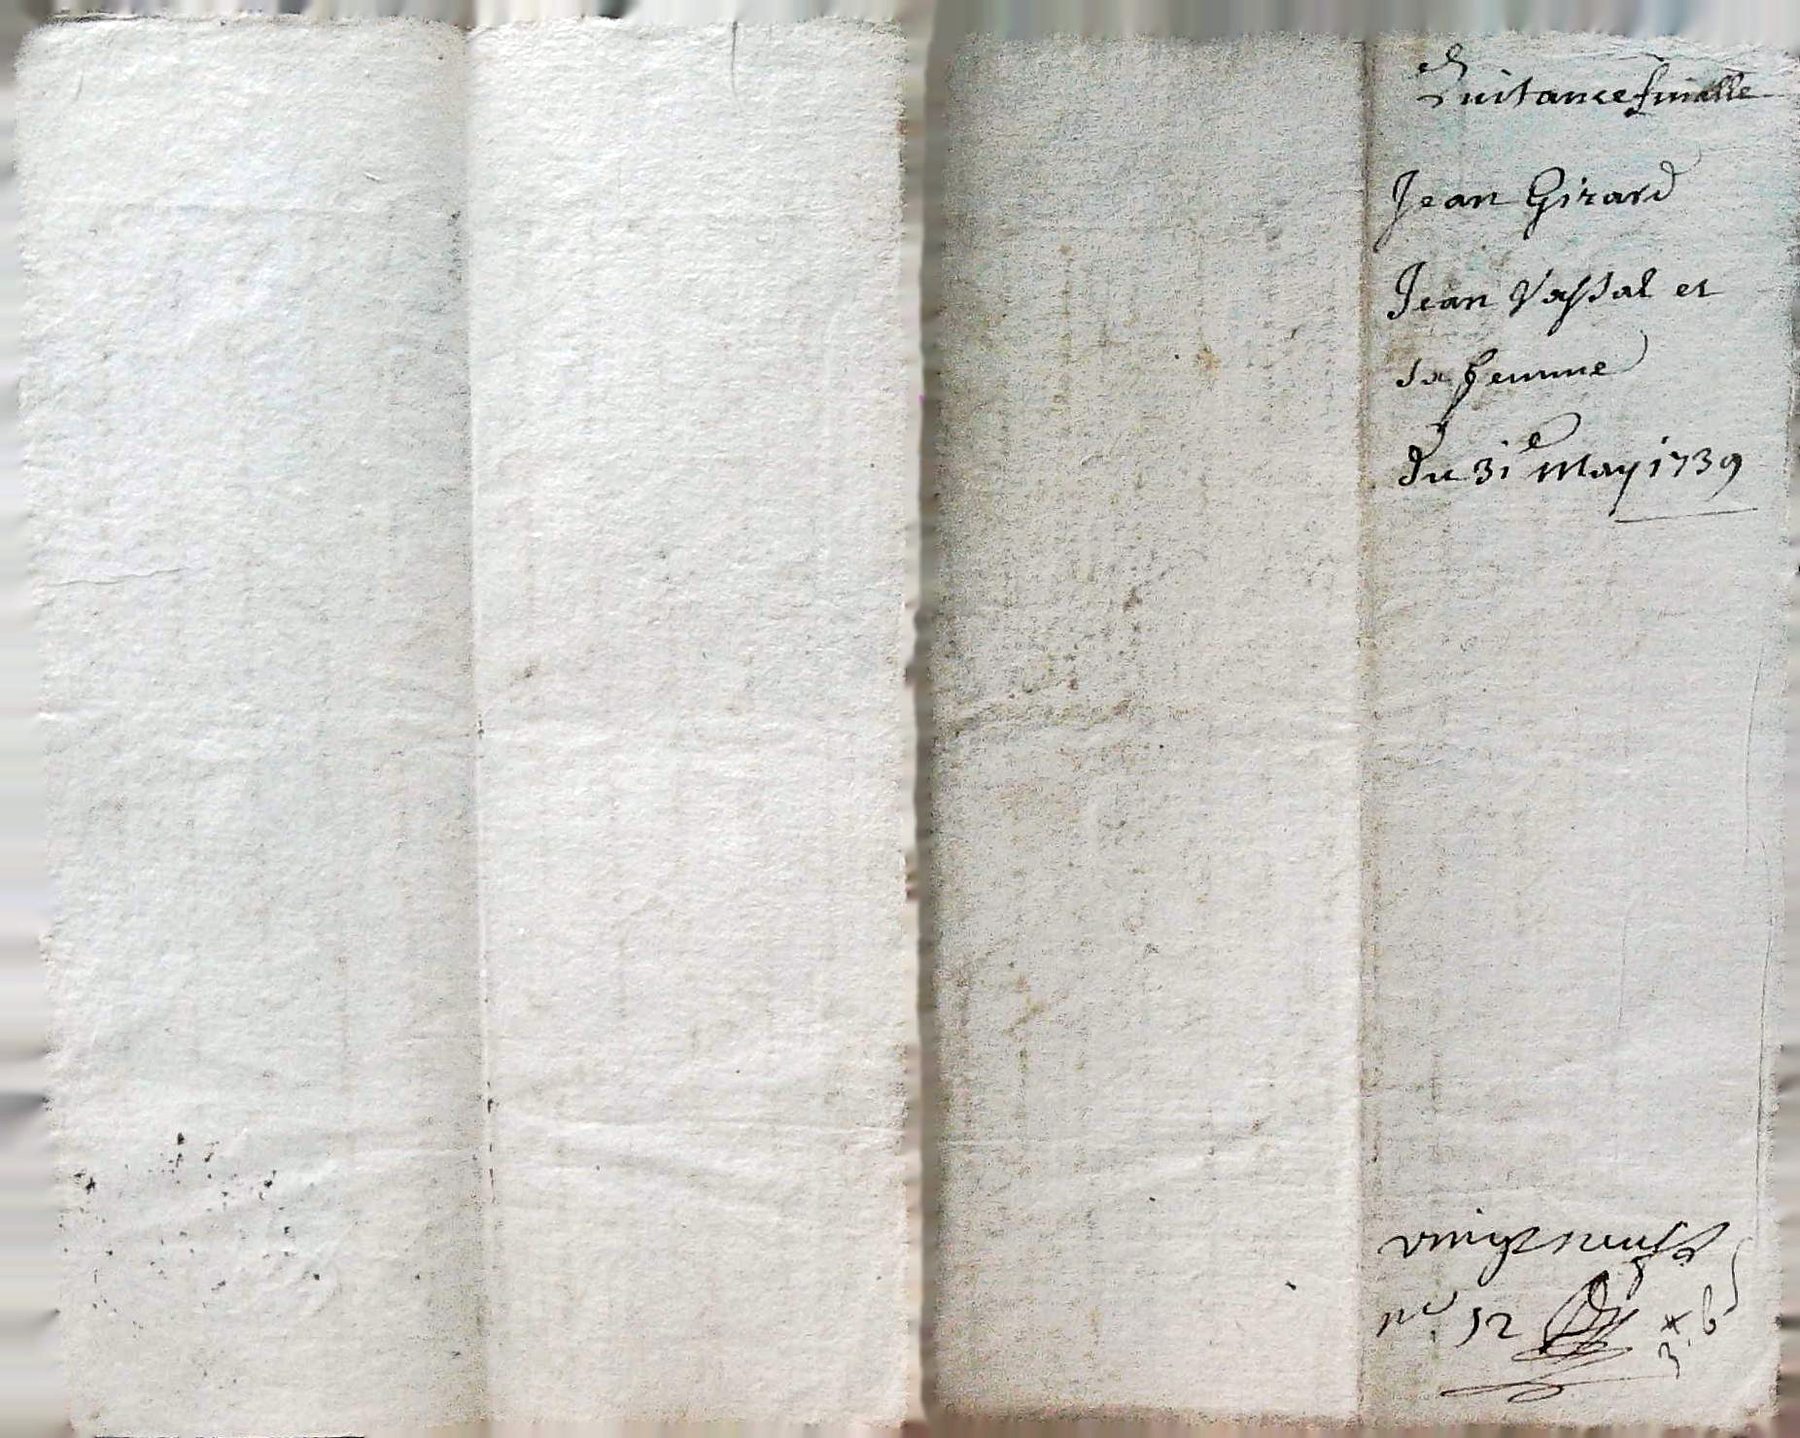 Quitance finalle
Jean Girard
Jean Vassal et
sa femme
du 31e May 1739
vingt neuf
no. 12